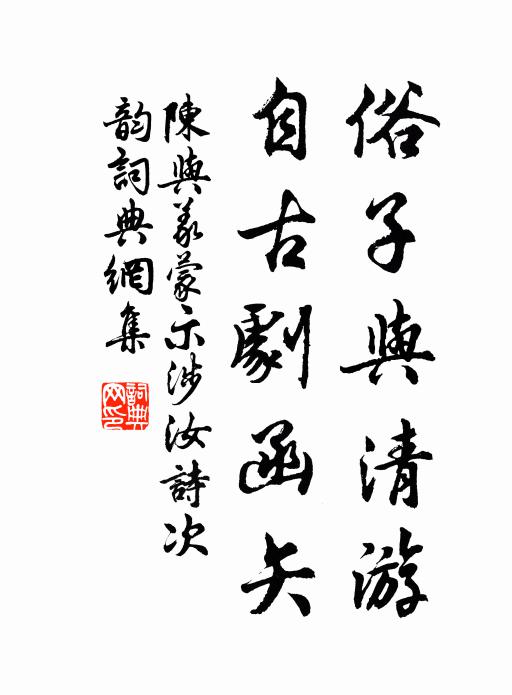 俗子與清游
自古劇函矢
陳與義蒙示涉汝詩次
韵詞典網集
詞典網印